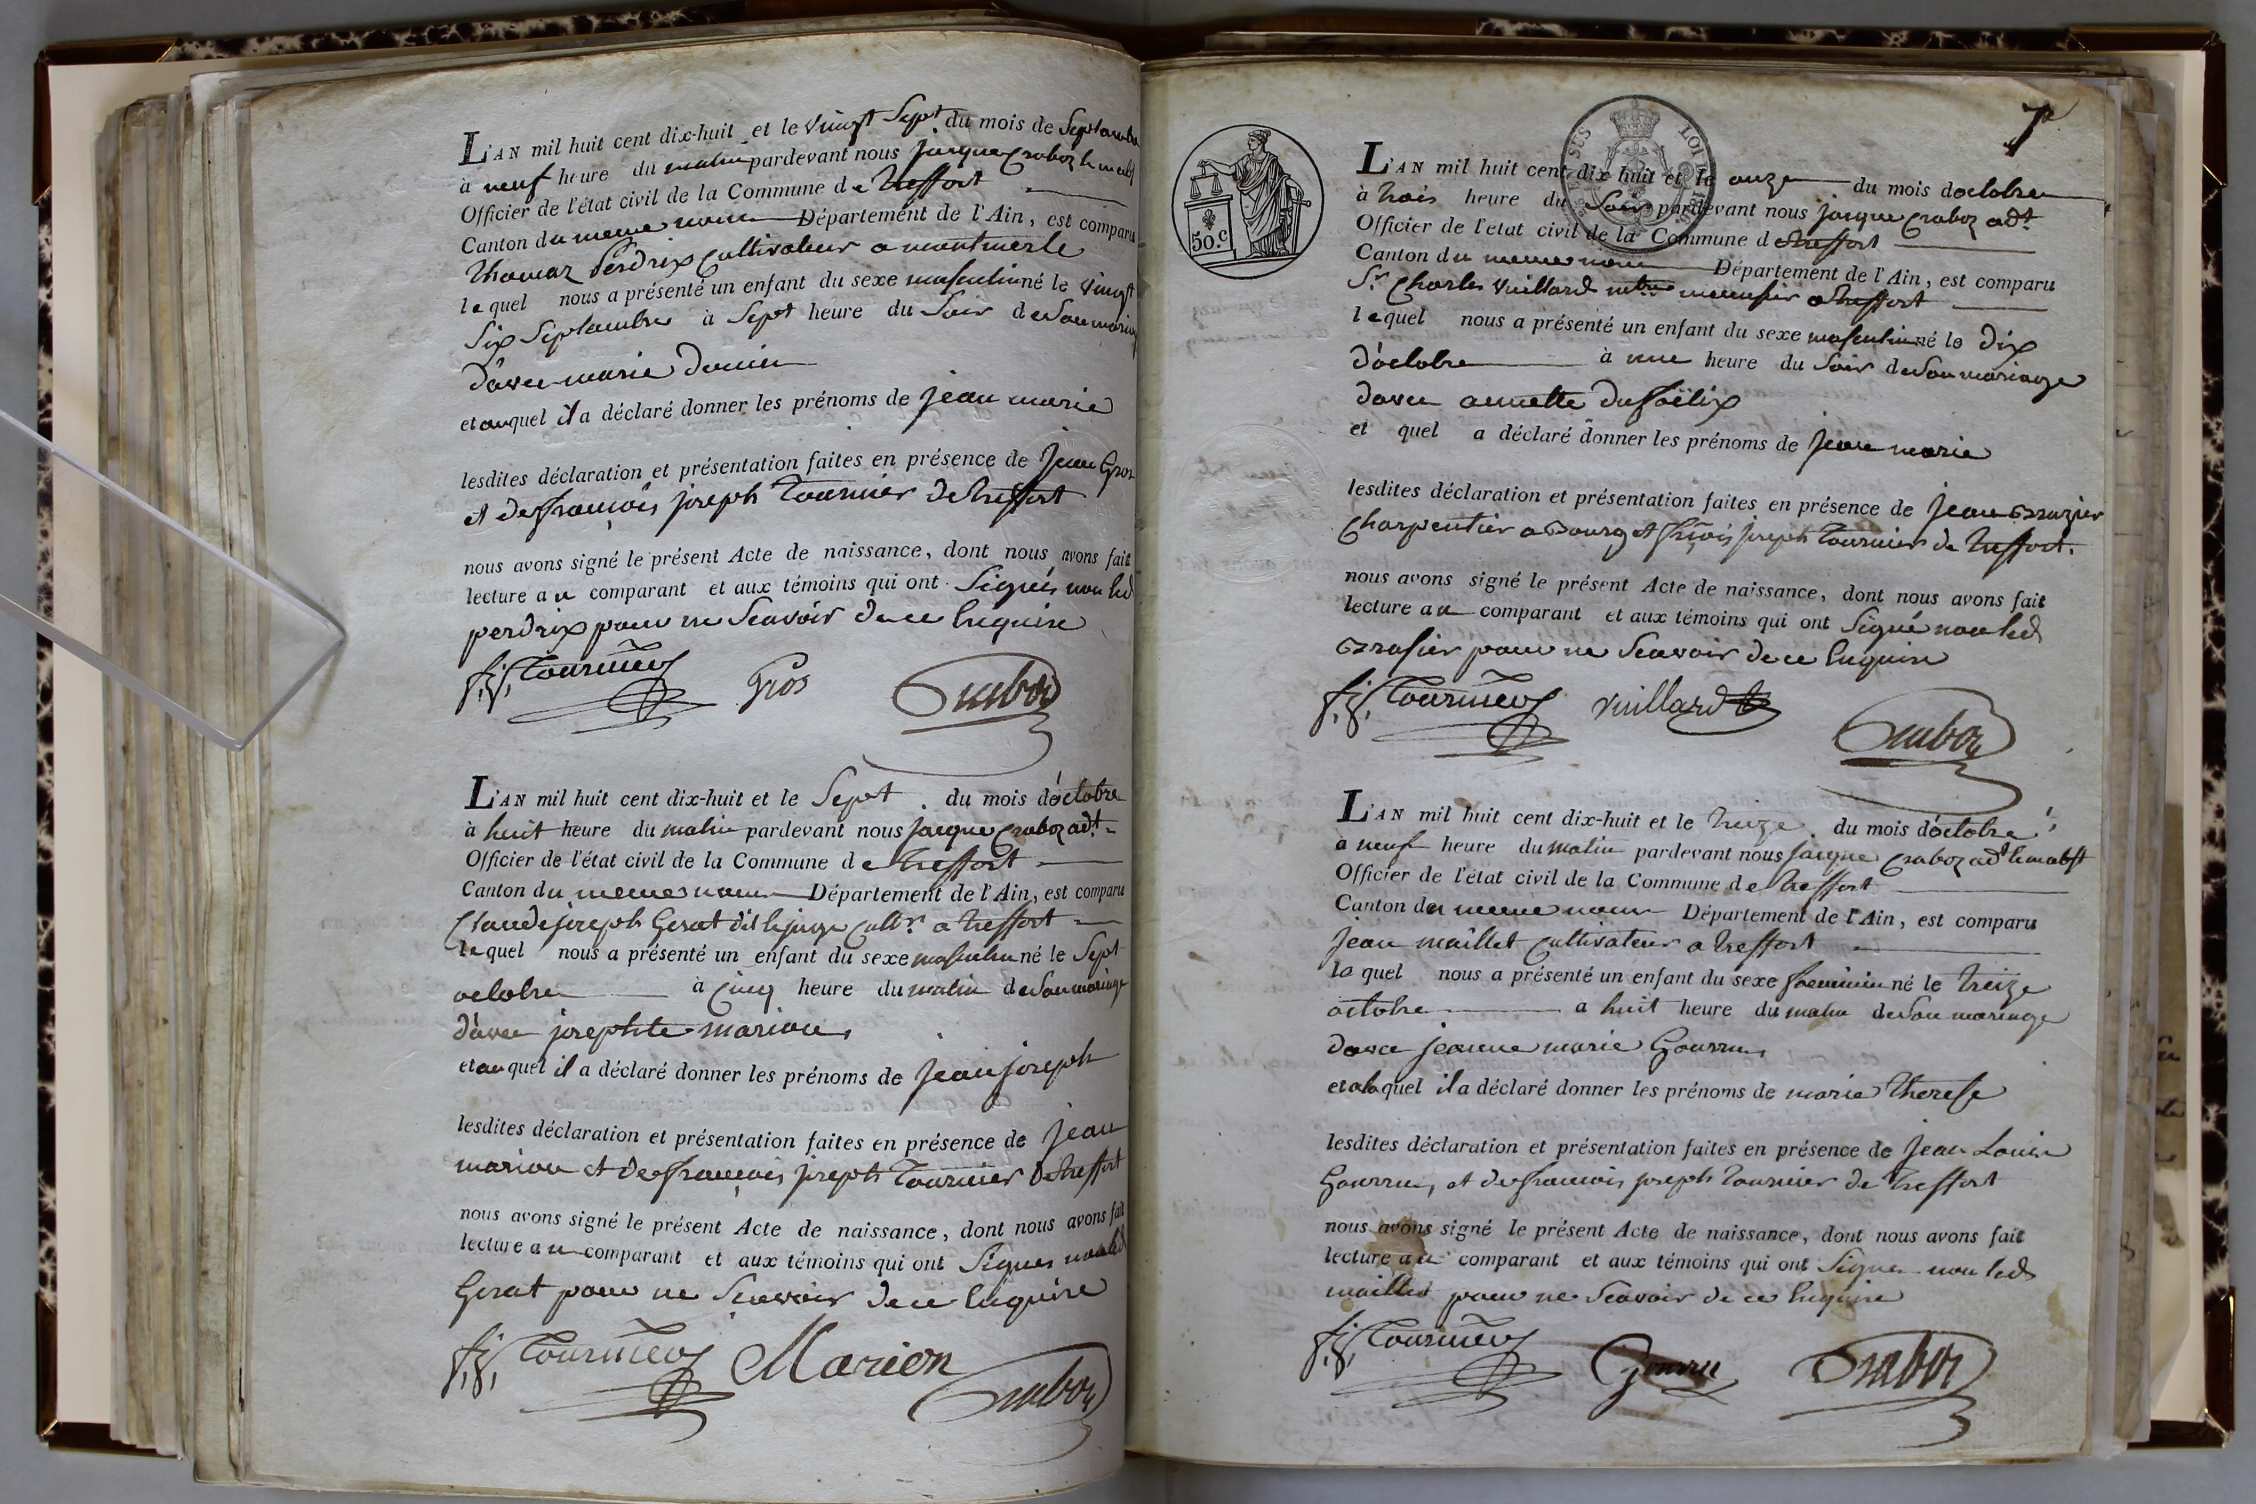 L'AN mil huit cent dix-huit et le vingt Sept du mois de Septambre
à neuf heure du matin pardevant nous jacque Craboz
Officier de l'état civil de la Commune de treffort
Canton du meme nom Département de l'Ain, est comparu
thomaz Perdrix Cultivateur a montmerle
lequel nous a présenté un enfant du sexe masculin né le vingt
Six Septambre à Sept heure du Soir de Son mariage
d'avec marie
et auquel il a déclaré donner les prénoms de jean marie
lesdites déclaration et présentation faites en présence de jean Gros
et de françois joseph tournier de treffort
nous avons signé le présent Acte de naissance, dont nous avons fait
lecture au comparant et aux témoins qui ont Signés non led
perdrix pour ne Scavoir de ce Enquire
f. j. tournier Gros Craboz
L'AN mil huit cent dix-huit et le Sept du mois d'octobre
à huit heure du matin pardevant nous jacque Craboz adt
Officier de l'état civil de la Commune de treffort
Canton du meme nom Département de l'Ain, est comparu
Claude joseph Gerat dit le juge Cultr a treffort
lequel nous a présenté un enfant du sexe masculin né le Sept
octobre à Cinq heure du matin de Son mariage
d'avec josephte marion
et auquel il a déclaré donner les prénoms de jean joseph
lesdites déclaration et présentation faites en présence de jean
marion et de françois joseph tournier de treffort
nous avons signé le présent Acte de naissance, dont nous avons fait
lecture au comparant et aux témoins qui ont Signés non led
Gerat pour ne Scavoir de ce Enquire
f. j. tournier Marion Craboz
7
50. c
L'AN mil huit cent dix-huit et le onze du mois d'octobre
à trois heure du Soir pardevant nous jacque Craboz adt
Officier de l'état civil de la Commune de treffort
Canton du meme nom Département de l'Ain, est comparu
Sr Charles vuillard meunsier a treffort
lequel nous a présenté un enfant du sexe masculin né le dix
d'octobre à une heure du Soir de Son mariage
davec annette dufoëlix
et quel a déclaré donner les prénoms de jean marie
lesdites déclaration et présentation faites en présence de jean Brazier
Charpentier a Bourg et frçois joseph tournier de treffort.
nous avons signé le présent Acte de naissance, dont nous avons fait
lecture au comparant et aux témoins qui ont Signé non led
Brasier pour ne Scavoir de ce Enquire
f. j. tournier vuillard Craboz
L'AN mil huit cent dix-huit et le treize du mois d'octobre
à neuf heure du matin pardevant nous jacque Craboz adt
Officier de l'état civil de la Commune de treffort
Canton du meme nom Département de l'Ain, est comparu
jean maillet Cultivateur a treffort
le quel nous a présenté un enfant du sexe foeminin né le treize
octobre à huit heure du matin de Son mariage
davec jeanne marie Gourru
et a laquel il a déclaré donner les prénoms de marie therese
lesdites déclaration et présentation faites en présence de jean Louis
Gourru et de françois joseph tournier de treffort
nous avons signé le présent Acte de naissance, dont nous avons fait
lecture au comparant et aux témoins qui ont Signes non led
maillet pour ne Scavoir de ce Enquire
f. j. tournier Gourru Craboz